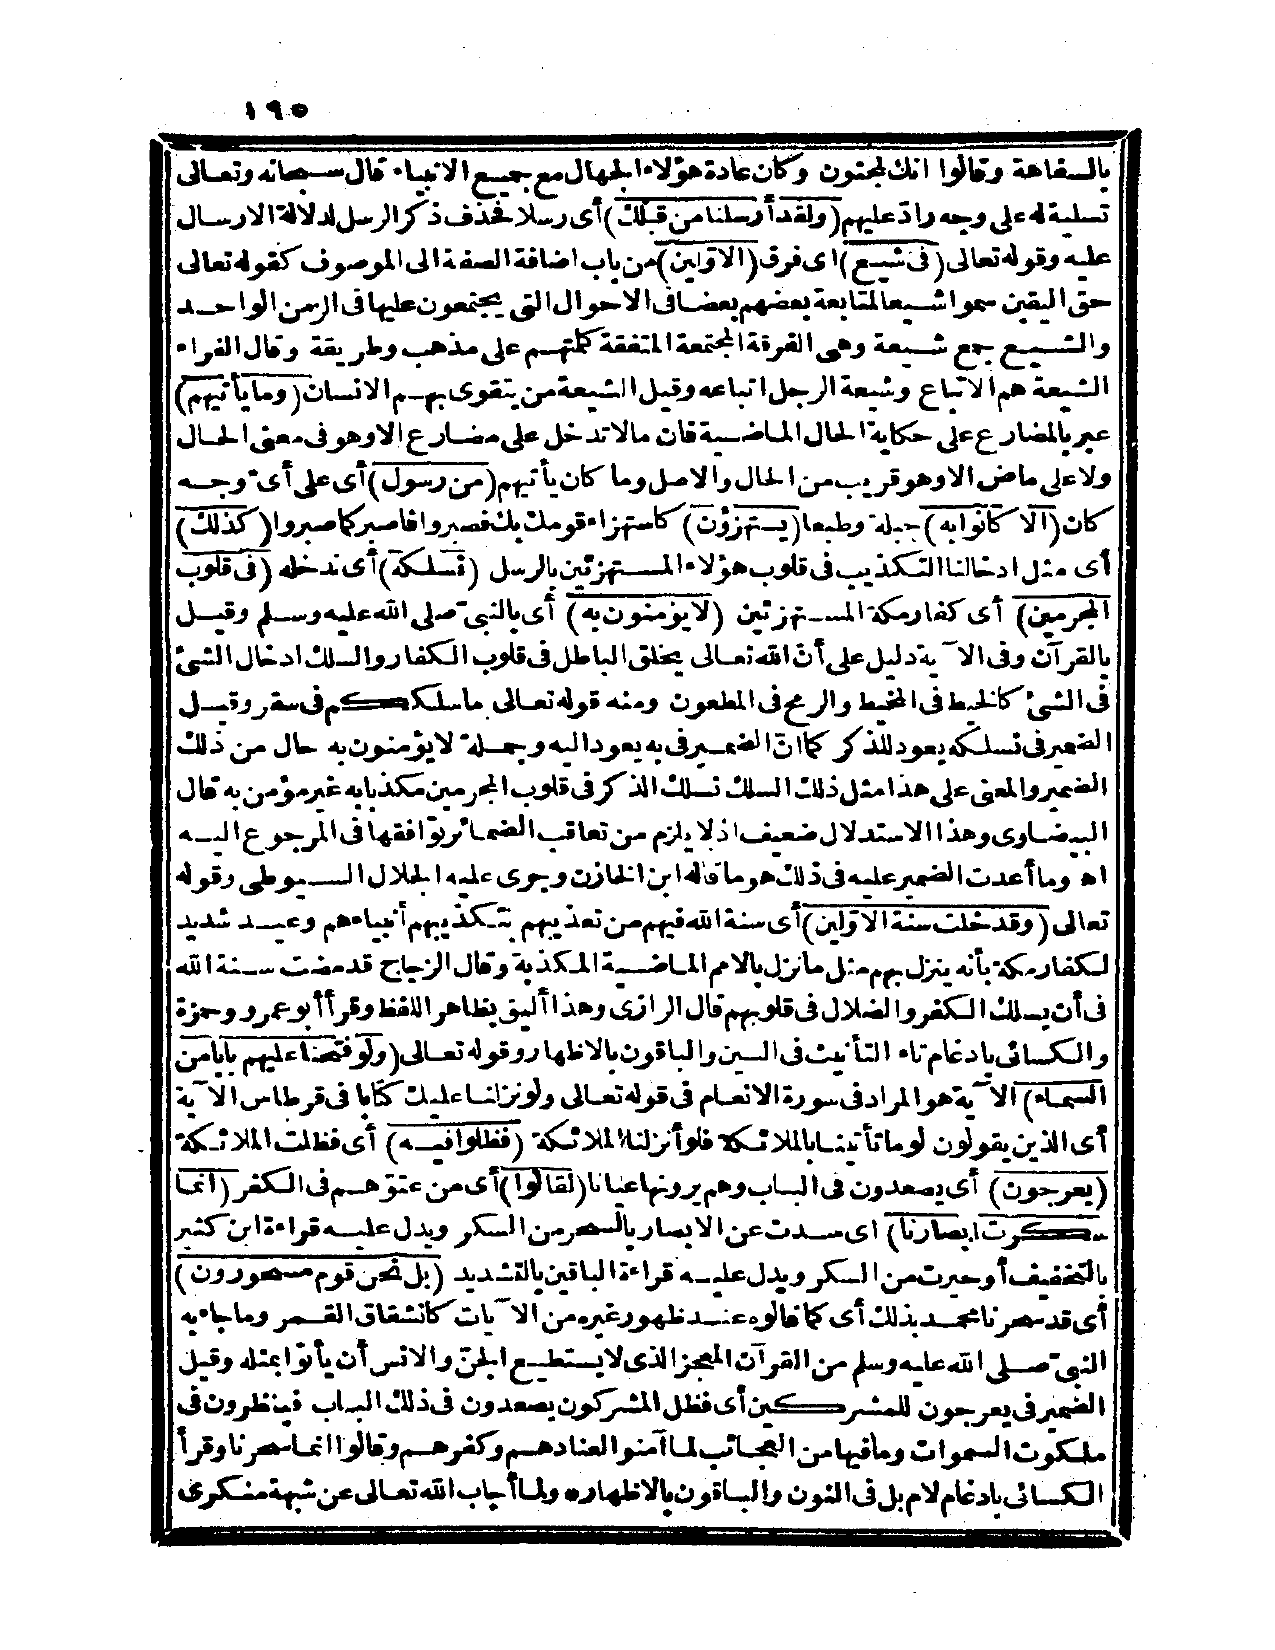 ١٩٥
بالسفاهة وقالوا انك لمجنون وكان عادة هؤلاء الجهال مع جميع الانبياء قال سبحانه وتعالى
تسلية له على وجه رادّ عليهم (ولقد أرسلنا من قبلك) أى رسلا فحذف ذكر الرسل لدلالة الارسال
عليه وقوله تعالى (فى شيع) اى فرق (الاوّلين) من باب اضافة الصفة الى الموصوف كقوله تعالى
حق اليقين سموا شيعا لمتابعة بعضهم بعضا فى الاحوال التى يجتمعون عليها فى الزمن الواحد
والشيع جمع شيعة وهى الفرقة المجتمعة المتفقة كلمتهم على مذهب وطريقة وقال الفراء
الشيعة هم الاتباع وشيعة الرجل اتباعه وقيل الشيعة من يتقوى بهم الانسان (وما يأتيهم)
عبر بالمضارع على حكاية الحال الماضية فان مالا تدخل على مضارع الا وهو فى معنى الحال
ولا على ماض الا وهو قريب من الحال والاصل وما كان يأتيهم (من رسول) أى على أىّ وجه
كان (الا كانوا به) جبلة وطبعا (يستهزؤن) كاستهزاء قومك بك فصبروا فاصبر كما صبروا (كذلك)
أى مثل ادخالنا التكذيب فى قلوب هؤلاء المستهزئين بالرسل (نسلكه) أى ندخله (فى قلوب
المجرمين) أى كفار مكة المستهزئين (لا يؤمنون به) أى بالنبىّ صلى الله عليه وسلم وقيل
بالقرآن وفى الآية دليل على أنّ الله تعالى يخلق الباطل فى قلوب الكفار والسلك ادخال الشئ
فى الشئ كالخيط فى المخيط والرمح فى المطعون ومنه قوله تعالى ما سلككم فى سقر وقيل
الضمير فى نسلكه يعود للذكر كما انّ الضمير فى به يعود اليه وجملة لا يؤمنون به حال من ذلك
الضمير والمعنى على هذا مثل ذلك السلك نسلك الذكر فى قلوب المجرمين مكذبا به غير مؤمن به قال
البيضاوى وهذا الاستدلال ضعيف اذ لا يلزم من تعاقب الضمائر توافقها فى المرجوع اليه
اه وما أعدت الضمير عليه فى ذلك هو ما قاله ابن الخازن وجرى عليه الجلال السيوطى وقوله
تعالى (وقد خلت سنة الاوّلين) أى سنة الله فيهم من تعذيبهم بتكذيبهم أنبياءهم وعيد شديد
لكفار مكة بأنه ينزل بهم مثل ما نزل بالامم الماضية المكذبة وقال الزجاج قد مضت سنة الله
فى أن يسلك الكفر والضلال فى قلوبهم قال الرازى وهذا أليق بظاهر اللفظ وقرأ أبو عمرو وحمزة
والكسائى بادغام تاء التأنيث فى السين والباقون بالاظهار وقوله تعالى (ولو فتحنا عليهم بابا من
السماء) الآية هو المراد فى سورة الانعام فى قوله تعالى ولو نزلنا عليك كتابا فى قرطاس الآية
أى الذين يقولون لوما تأتينا بالملائكة فلو أنزلنا الملائكة (فظلوا فيه) أى فظلت الملائكة
(يعرجون) أى يصعدون فى الباب وهم يرونها عيانا (لقالوا) أى من عتوّهم فى الكفر (انما
سكرت ابصارنا) اى سدت عن الابصار بالسحر من السكر ويدل عليه قراءة ابن كثير
بالتخفيف أو حيرت من السكر ويدل عليه قراءة الباقين بالتشديد (بل نحن قوم مسحورون)
أى قد سحرنا محمد بذلك أى كما قالوه عند ظهور غيره من الآيات كانشقاق القمر وما جاء به
النبىّ صلى الله عليه وسلم من القرآن المعجز الذى لا يستطيع الجنّ والانس أن يأتوا بمثله وقيل
الضمير فى يعرجون للمشركين أى فظل المشركون يصعدون فى ذلك الباب فينظرون فى
ملكوت السموات وما فيها من العجائب لما آمنوا لعنادهم وكفرهم وقالوا انما سحرنا وقرأ
الكسائى بادغام لام بل فى النون والباقون بالاظهار ه ولما أجاب الله تعالى عن شبهة منكرى